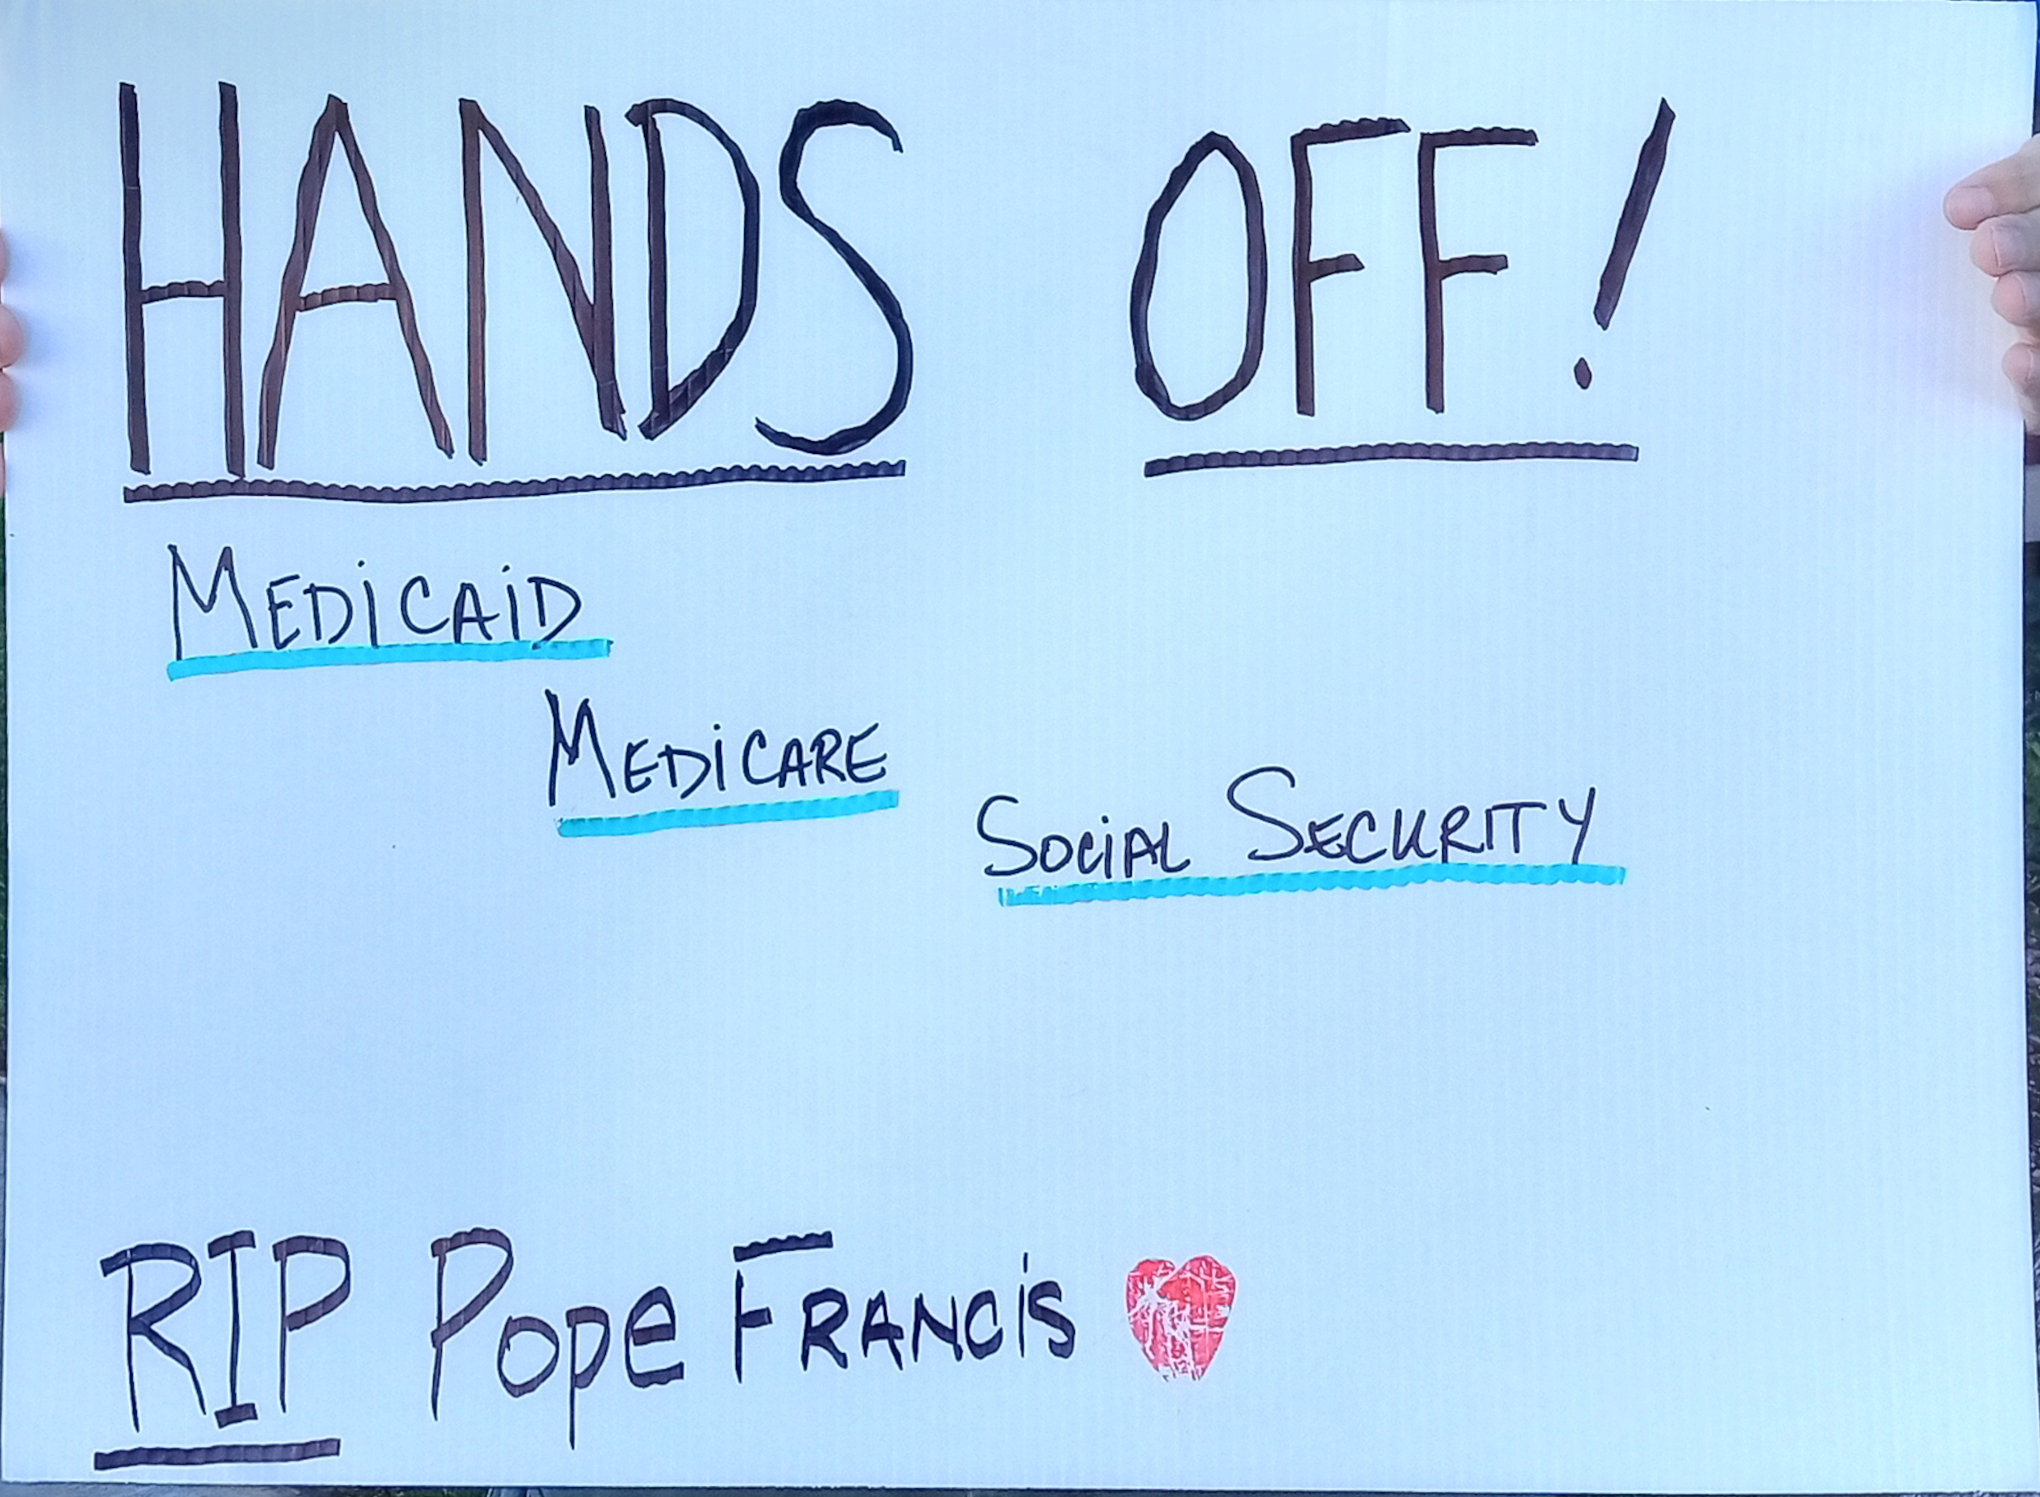 HANDS OFF!
MEDiCAiD
MEDiCARE
SOCiAL SECURITY
RIP POpe FRANCiS